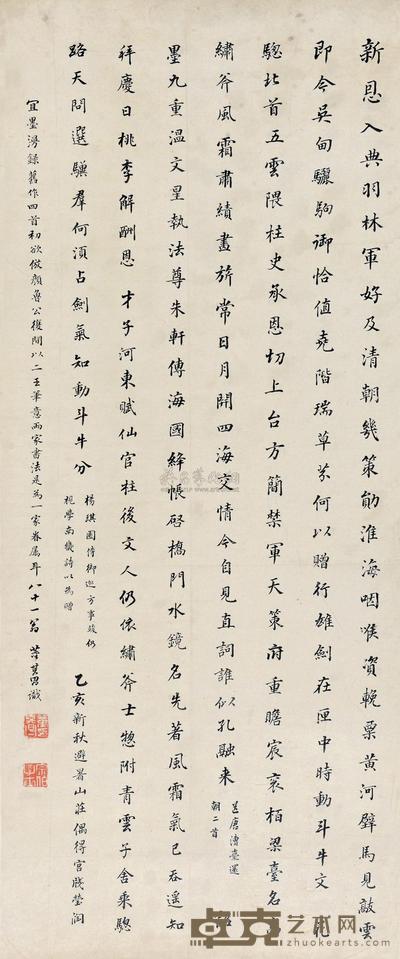 新恩入典羽林軍好及清朝幾策勛淮海咽喉資輓粟黃河璧馬見敲雲
即今吳甸驪駒御恰值堯階瑞草芬何以贈行雄劍在匣中時動斗牛文
驄北首五雲隈柱史承恩切上台方簡禁軍天策府重瞻宸衮栢梁臺名
繡斧風霜肅績畫旂常日月開四海交情今自見直詞誰似孔融来
朝二首
墨九重溫文星執法尊朱軒傳海國絳帳啓橋門水鏡名先著風霜氣已吞遥知
拜慶日桃李解酬恩 才子河東賦仙官柱後文人仍依繡斧士惣附青雲子舍乘驄
路天問選驥羣何須占劍氣知動斗牛分
楊琪園侍御巡方事竣仍
視學南畿詩以為贈
乙亥新秋避暑山莊偶得官牋瑩潤
宜墨漫錄舊作四首初欲倣顏魯公從間以二王筆意兩家書法是為一家眷屬耳八十一翁 董其昌識
卓克艺术网
www.zhuokearts.com